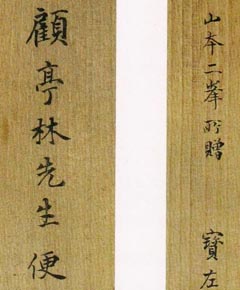 山本二峯所贈　寶左
顧亭林先生便